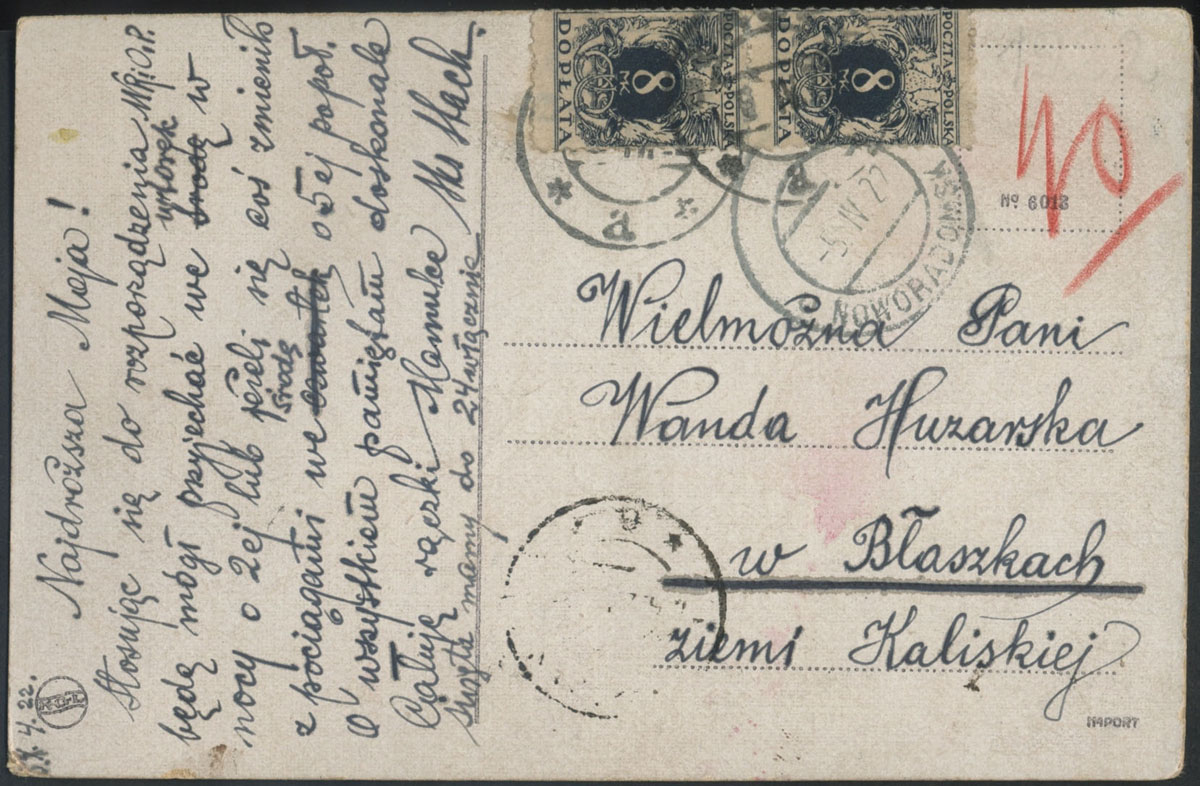 4.22.
Najdroższa Moja!
Stosując się do rozporządzenia MRiOP.
wtorek
będę mógł przyjechać we środę w
nocy o 2ej lub jeżeli się coś zmieniło
środę
z pociągami we czwartek o 5ej popoł.
O wszystkiem pamiętam doskonale
Całuję rączki Mamuce Stach.
mamy do 24 włącznie
POCZTA POLSKA
8
MK
DOPŁATA
POCZTA POLSKA
8
MK
DOPŁATA
a
a
-5.IV 22
NOWORADOMSK
40
No 6013
Wielmożna Pani
Wanda Huzarska
w Błaszkach
ziemi Kaliskiej
IMPORT